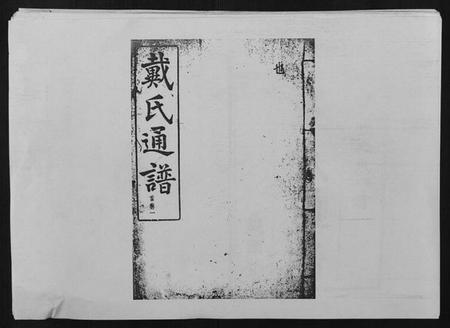 戴氏通譜